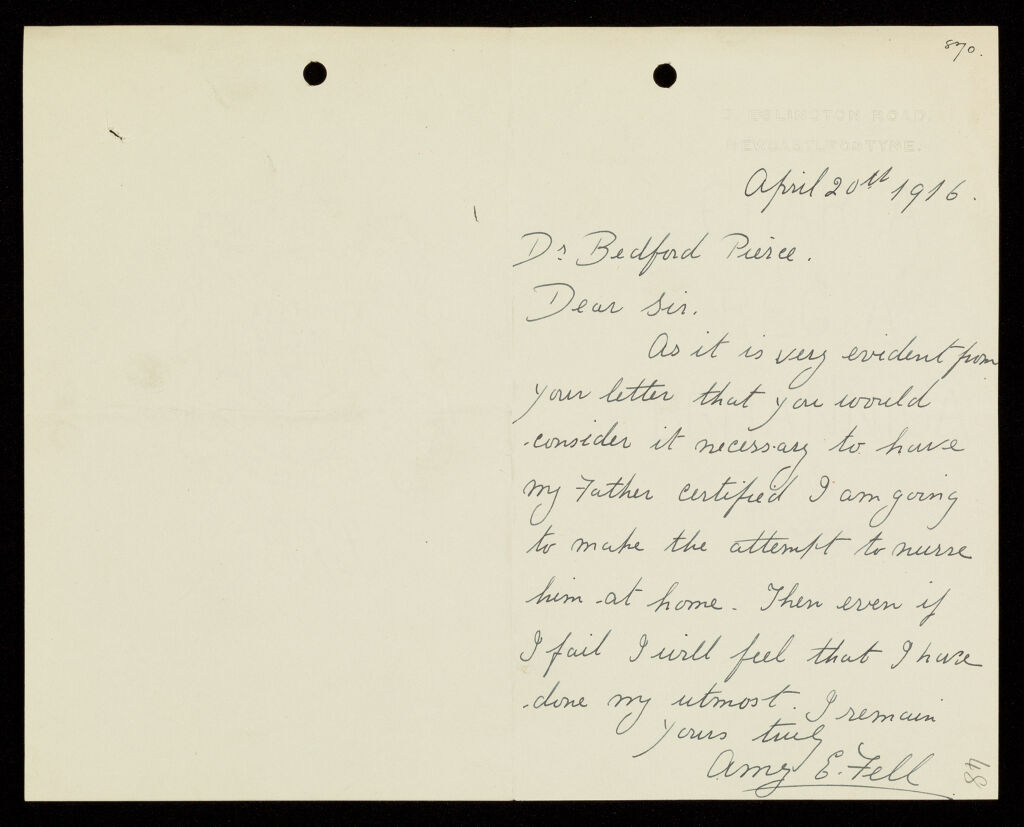 870.
ESLINGTON ROAD,
NEWCASTLE ON TYNE.
April 20th 1916.
Dr Bedford Pierce.
Dear Sir.
As it is very evident from
your letter that you would
consider it necessary to have
my Father certified I am going
to make the attempt to nurse
him at home. Then even if
I fail I will feel that I have
done my utmost. I remain
Yours truly
Amy E. Fell
48